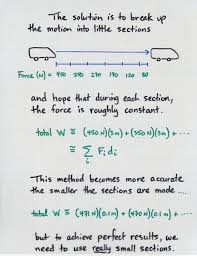 The solution is to break up
the motion into little sections
Force (N) = 450 350 270 190 120 80
and hope that during each section,
the force is roughly constant.
total W ≅ (450 N)(3m) + (350 N)(3m) + ····
≅ Σ Fᵢ dᵢ
i
This method becomes more accurate
the smaller the sections are made ....
total W ≅ (471 N)(0.1m) + (470 N)(0.1m) + ····
but to achieve perfect results, we
need to use really small sections.